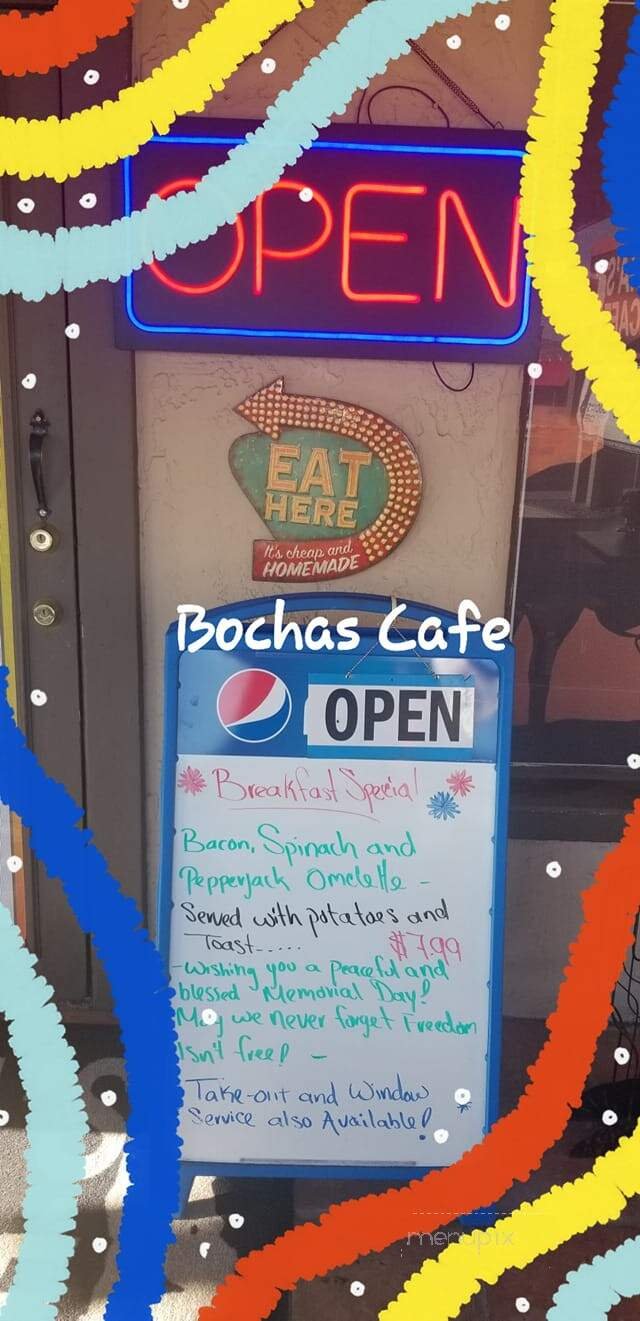 OPEN
EAT
HERE
It's cheap and
HOMEMADE
Bochas Cafe
OPEN
Breakfast Special
Bacon, Spinach and
Pepperjack Omelette -
Served with potatoes and
Toast..... $7.99
-Wishing you a peaceful and
blessed Memorial Day!
May we never forget Freedom
Isn't free! -
Take-out and Window
Service also Available!
menupix